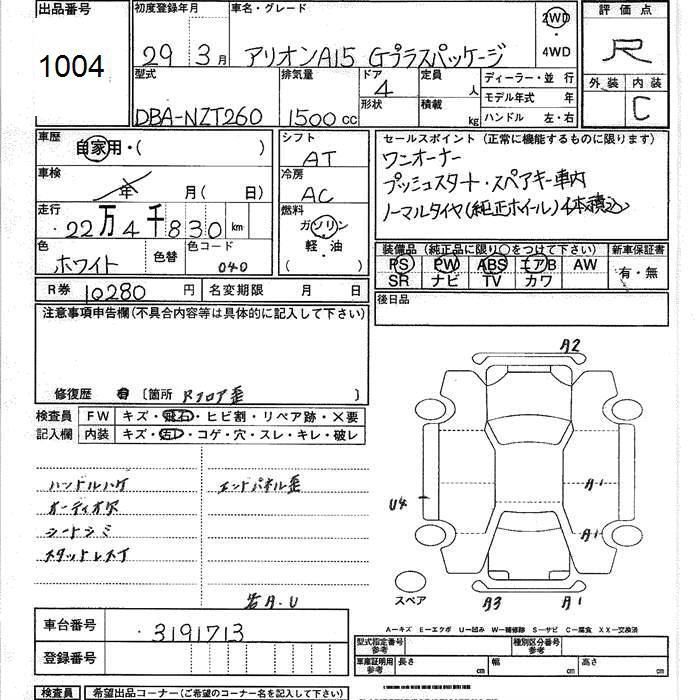 出品番号
1004
初度登録年月
29 3月
車名・グレード
アリオンA15 Gプラスパッケージ
2WD
・
4WD
評価点
R
外装 内装
C
型式
DBA-NZT260
排気量
1500 cc
ドア
4
形状
定員
人
積載
kg
ディーラー・並 行
モデル年式 年
ハンドル 左・右
車歴
自家用・( )
車検
年 月( 日)
走行
22万4千830 km
色
ホワイト
色替
カラーコード
040
シフト
AT
冷房
AC
燃料
ガソリン
軽・油
( )
セールスポイント (正常に機能するものに限ります)
ワンオーナー
プッシュスタート・スペアキー車内
ノーマルタイヤ(純正ホイール)4本積込
装備品 (純正品に限り○をつけて下さい)
PS PW ABS エアB AW
SR ナビ TV カワ
新車保証書
有・無
後日品
R券 10280 円
名変期限 月 日
注意事項申告欄(不具合内容等は具体的に記入して下さい)
修復歴 有 〔箇所 Rフロア歪 〕
検査員
記入欄
FW キズ・飛石・ヒビ割・リペア跡・×要
内装 キズ・汚レ・コゲ・穴・スレ・キレ・破レ
ハンドルハゲ
オーディオ欠
シートシミ
スタットレスT
エンドパネル歪
若A.U
A2
U4
A1
A1
A3
A1
スペア
A－キズ E－エクボ U－凹み W－補修跡 S－サビ C－腐食 XX－交換済
車台番号
3191713
登録番号
型式指定番号
参考
種別区分番号
参考
車庫証明用
参考
長さ cm 幅 cm 高さ cm
検査員
希望出品コーナー(ご希望のコーナー名を記入して下さい)